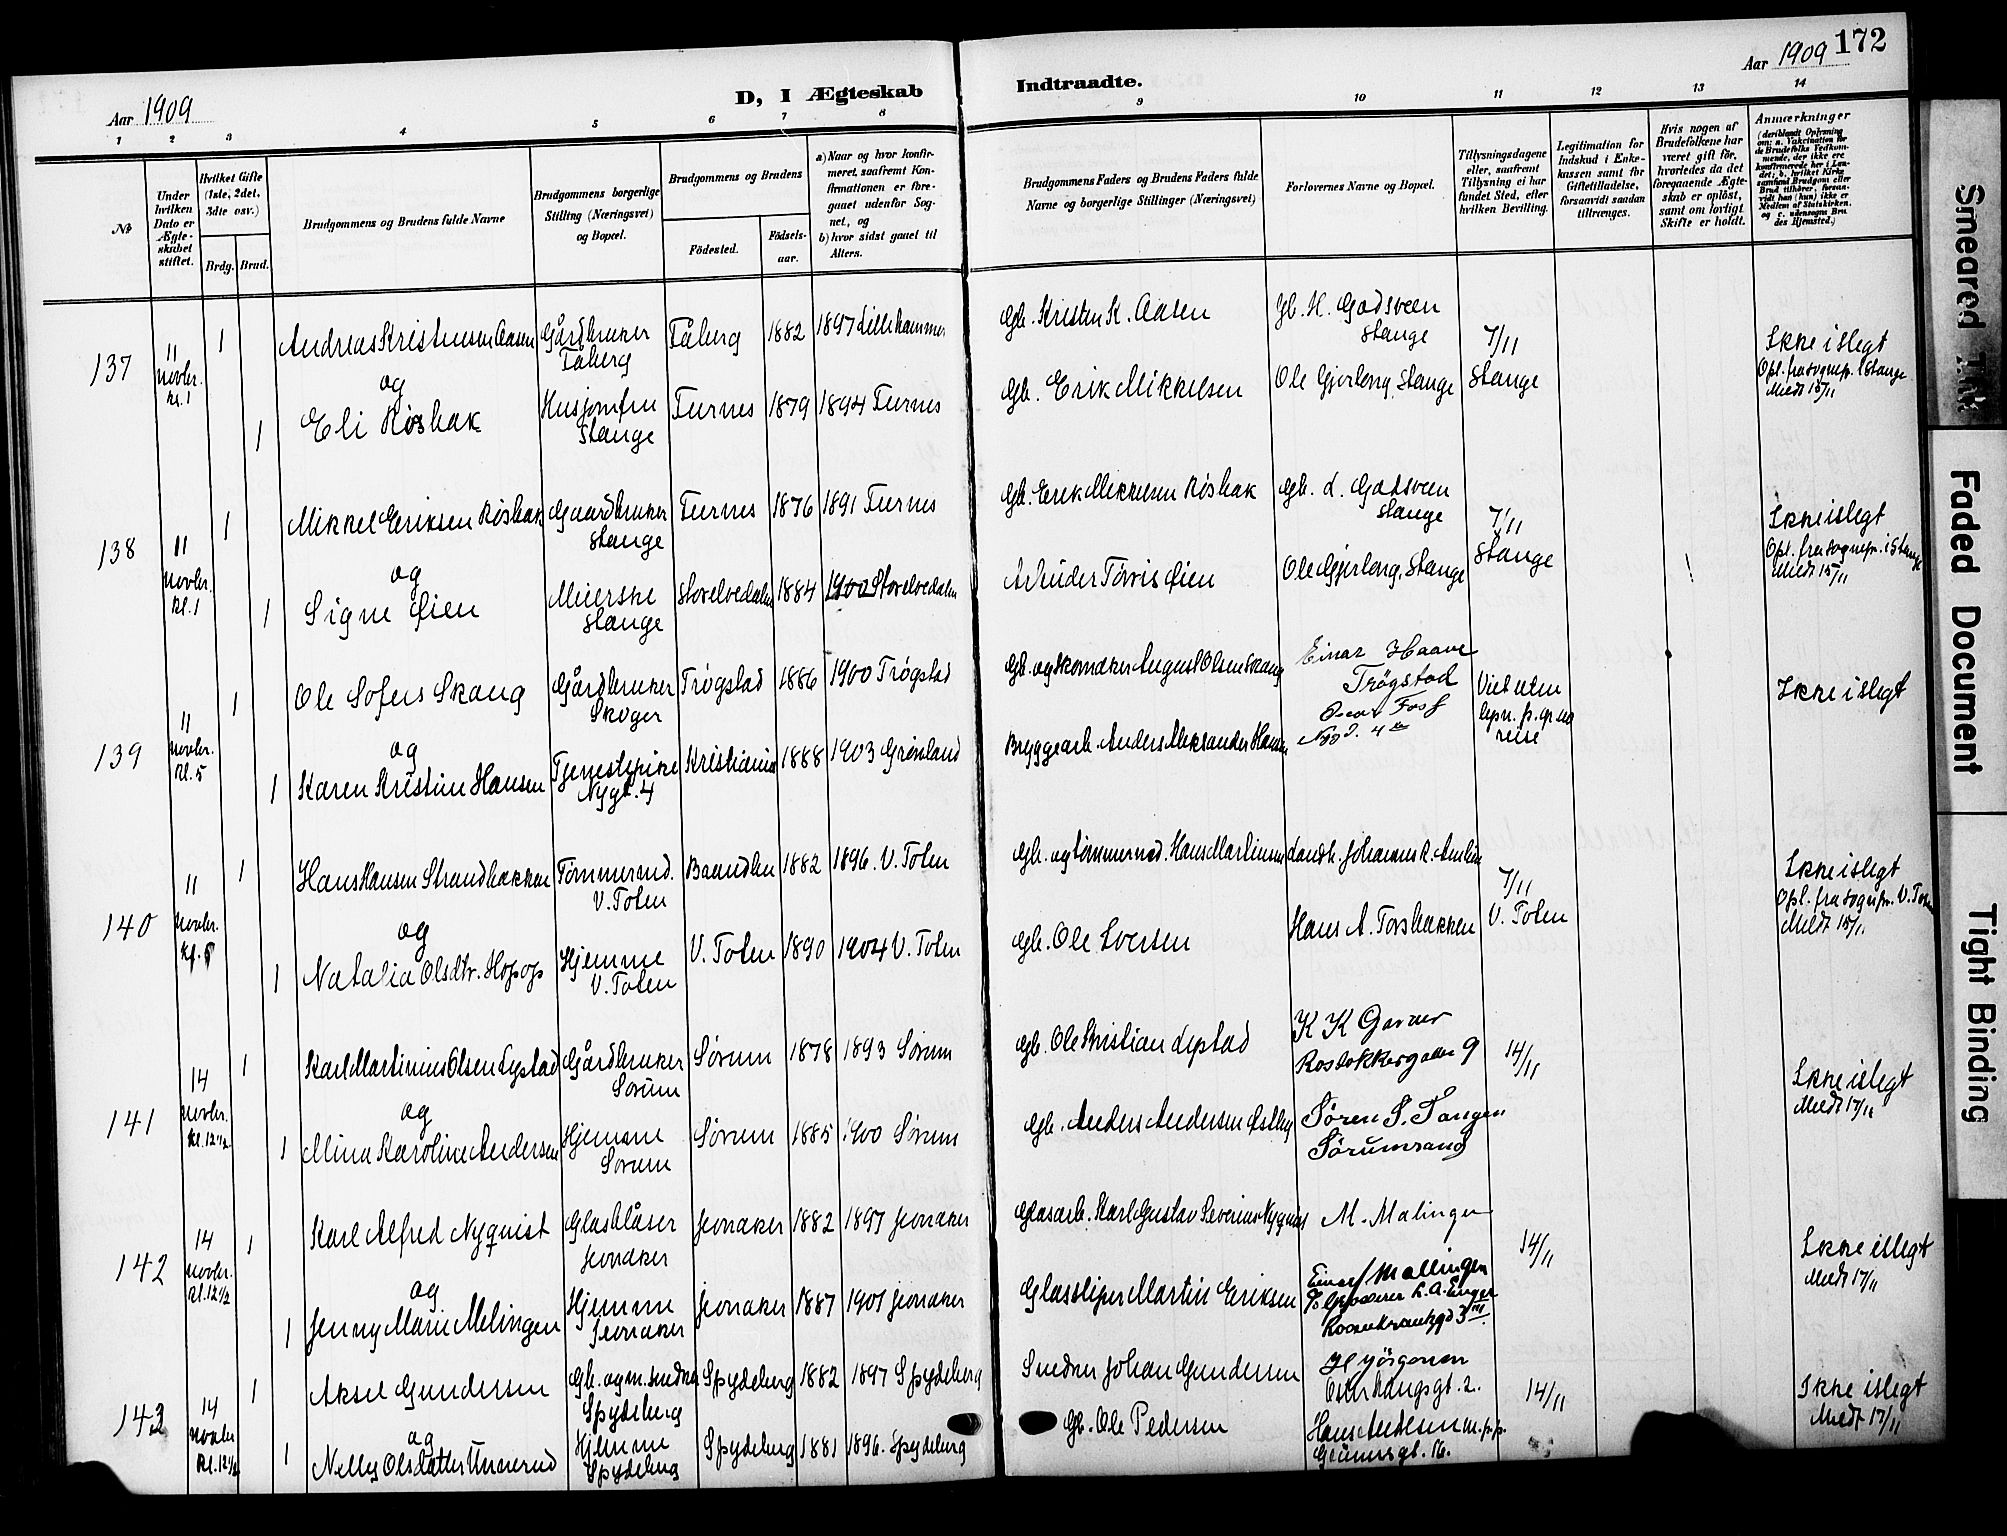 172
Aar 1909
D, I Ægteskab
Indtraadte.
Aar 1909
1 2 3 4 5 6 7 8 9 10 11 12 13 14
№
Under hvilken Dato er Ægteskabet stiftet.
Hvilket Gifte (1ste, 2det, 3dte osv.)
Brdg. Brud.
Brudgommens og Brudens fulde Navne
Brudgommens borgerlige Stilling (Næringsvei) og Bopæl.
Brudgommens og Brudens
Fødested.
Fødselsaar.
a) Naar og hvor konfirmeret, saafremt Konfirmationen er foregaaet udenfor Sognet, og
b) hvor sidst gaaet til Alters.
Brudgommens Faders og Brudens Faders fulde Navne og borgerlige Stillinger (Næringsvei)
Forlovernes Navne og Bopæl.
Tillysningsdagene eller, saafremt Tillysning ei har fundet Sted, efter hvilken Bevilling.
Legitimation for Indskud i Enkekassen samt for Giftetilladelse, forsaavidt saadan tiltrænges.
Hvis nogen af Brudefolkene har været gift før, hvorledes da det foregaaende Ægteskab er opløst, samt om lovligt Skifte er holdt.
Anmærkninger
137 11 Novbr. Kl. 1
1 Andreas Kristensen Aasen Gårdbruker Fåberg Fåberg 1882 1897 Lillehammer Gb. Kristen K. Aasen Gb. H. Godsveen Stange 7/11 Ikke i slegt
og
1 Eli Røsbak Husjomfru Stange Furnes 1879 1894 Furnes Gb. Erik Mikkelsen Ole Gjerlong, Stange Stange Opl. fra sognepr. i Stange Meldt 15/11
138 11 Novbr. Kl. 1
1 Mikkel Eriksen Røsbak Gaardbruker Stange Furnes 1876 1891 Furnes Gb. Erik Mikkelsen Røsbak Gb. L. Godsveen Stange 7/11 Ikke i slegt
og
1 Signe Øien Meierske Stange Storelvedalen 1884 1900 Storelvedalen Øien Ole Gjerlong, Stange Stange Opl. fra sognepr. i Stange Meldt 15/11
139 11 Novbr. Kl. 5
1 Ole Sofus Skaug Gårdbruker Skoger Trøgstad 1886 1900 Trøgstad Gb. og skomaker August Olsen Skaug Einar Haave Trøgstad Viet uten Ikke i slegt
og
1 Karen Kristine Hansen Tjenestepike Nygt. 4 Kristiania 1888 1903 Grønland Bryggearb. Anders Aleksander Hansen Oscar Foss reise
140 11 Novbr. Kl. 5
1 Hans Hansen Strandbakken Tømmermd. V. Toten 1882 1896. V. Toten Gb. og tømmermd. Hans Martinsen Landh. Johannes R. 7/11 Ikke i slegt
og
1 Natalia Olsdtr. Hopop Hjemme V. Toten V. Toten 1890 1904 V. Toten Gb. Ole Iversen Hans A. Forsbakken V. Toten Opl. fra sognepr. V. Toten Meldt 15/11
141 14 Novbr. Kl. 12 1/2
1 Karl Martinius Olsen Lystad Gårdbruker Sørum Sørum 1878 1893 Sørum Gb. Ole Kristian Lystad K K Garder 9 14/11 Ikke i slegt
og
1 Mina Karoline Andersen Hjemme Sørum Sørum 1885 1900 Sørum Gb. Anders Andersen Østby Søren S. Tangen Sørumsand Meldt 17/11
142 14 Novbr. Kl. 12 1/2
1 Karl Alfred Nyqvist Glasblåser Jevnaker Jevnaker 1882 1897 Jevnaker Glasarb. Karl Gustav Severin Nyqvist M. Malingen 14/11 Ikke i slegt
og
1 Jenny Marie Melingen Hjemme Jevnaker Jevnaker 1887 1901 Jevnaker Glassliper Martin Eriksen Einar Mallingen L. A. Enger Rosenkrantzgd 3 Meldt 17/11
143 14 Novbr Kl. 12 1/2
1 Aksel Gundersen Gb. og m. snedker Spydeberg Spydeberg 1882 1897 Spydeberg Snedker Johan Gundersen H Jörgensen Osterhausgt. 2. 14/11 Ikke i slegt
og
1 Nelly Olsdatter Unnerud Hjemme Spydeberg Spydeberg 1881 1896. Spydeberg Gb. Ole Pedersen Hans Andersen 16. Meldt 17/11
Smeared Ink
Faded Document
Tight Binding